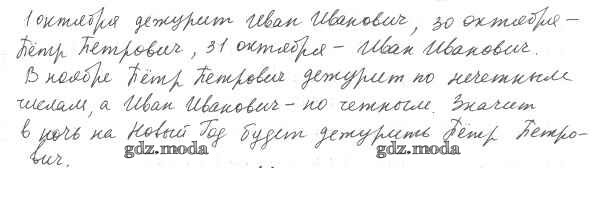 1 октября дежурит Иван Иванович, 30 октября –
Пётр Петрович, 31 октября – Иван Иванович.
В ноябре Пётр Петрович дежурит по нечетным
числам, а Иван Иванович – по четным. Значит
в ночь на Новый Год будет дежурить Пётр Петро-
вич.
gdz.moda gdz.moda